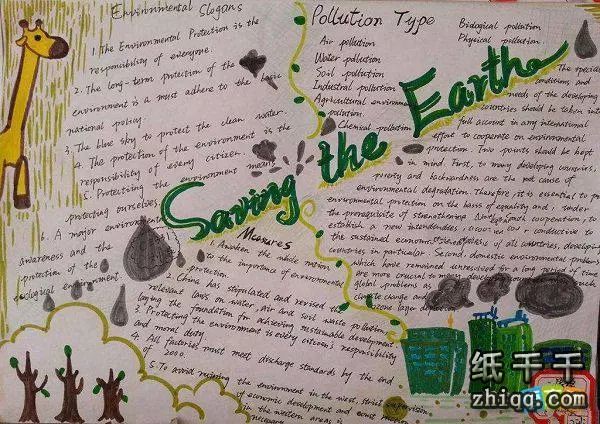 Environmental Slogans
1. The Environmental Protection is the
responsibility of everyone.
2. The long-term protection of the
environment is a must adhere to the basic
national policy.
3. The blue sky to protect the clean water.
4. The protection of the environment is the
responsibility of every citizen.
5. Protecting the environment means
protecting ourselves.
6. A major environmental
awareness and the
protection of the
ecological environment.
Saving the Earth
Pollution Type
Air pollution
Water pollution
Soil pollution
Industrial pollution
Agricultural environmental
pollution
Chemical pollution
Biological pollution
Physical pollution
The special
conditions and
needs of the developing
countries should be taken into
full account in any international
effort to cooperate on environmental
protection. Two points should be kept
in mind. First, to many developing countries,
poverty and backwardness are the root cause of
environmental degradation. Therefore, it is essential to
environmental protection on the basis of equality and under
the prerequisite of strengthening cooperation, to
establish a new
the sustained economic of all countries, developing
countries in particular. Second, domestic environmental problems
which have remained unresolved for a long period of time
are more crucial to many such
global problems as
climate change and
layer
Measures
1. Awaken the whole nation
to the importance of environmental
protection.
2. China has stipulated and revised the
relevant laws on water, air and soil waste pollution,
laying the foundation for achieving sustainable development.
3. Protecting the environment is every citizen's responsibility
and moral duty.
4. All factories must meet discharge standards by the end
of 2000.
5. To avoid ruining the environment in the west, strict supervision
of economic development and
in the western areas is
necessary.
纸千千
zhiqq.com